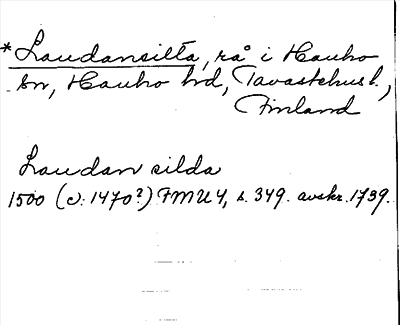 *Laudansilta, rå i Hauho
sn, Hauho hd, Tavastehusl.,
Finland
Laudan silda
1500 (c. 1470?) FMU 4, s. 349. avskr. 1739.